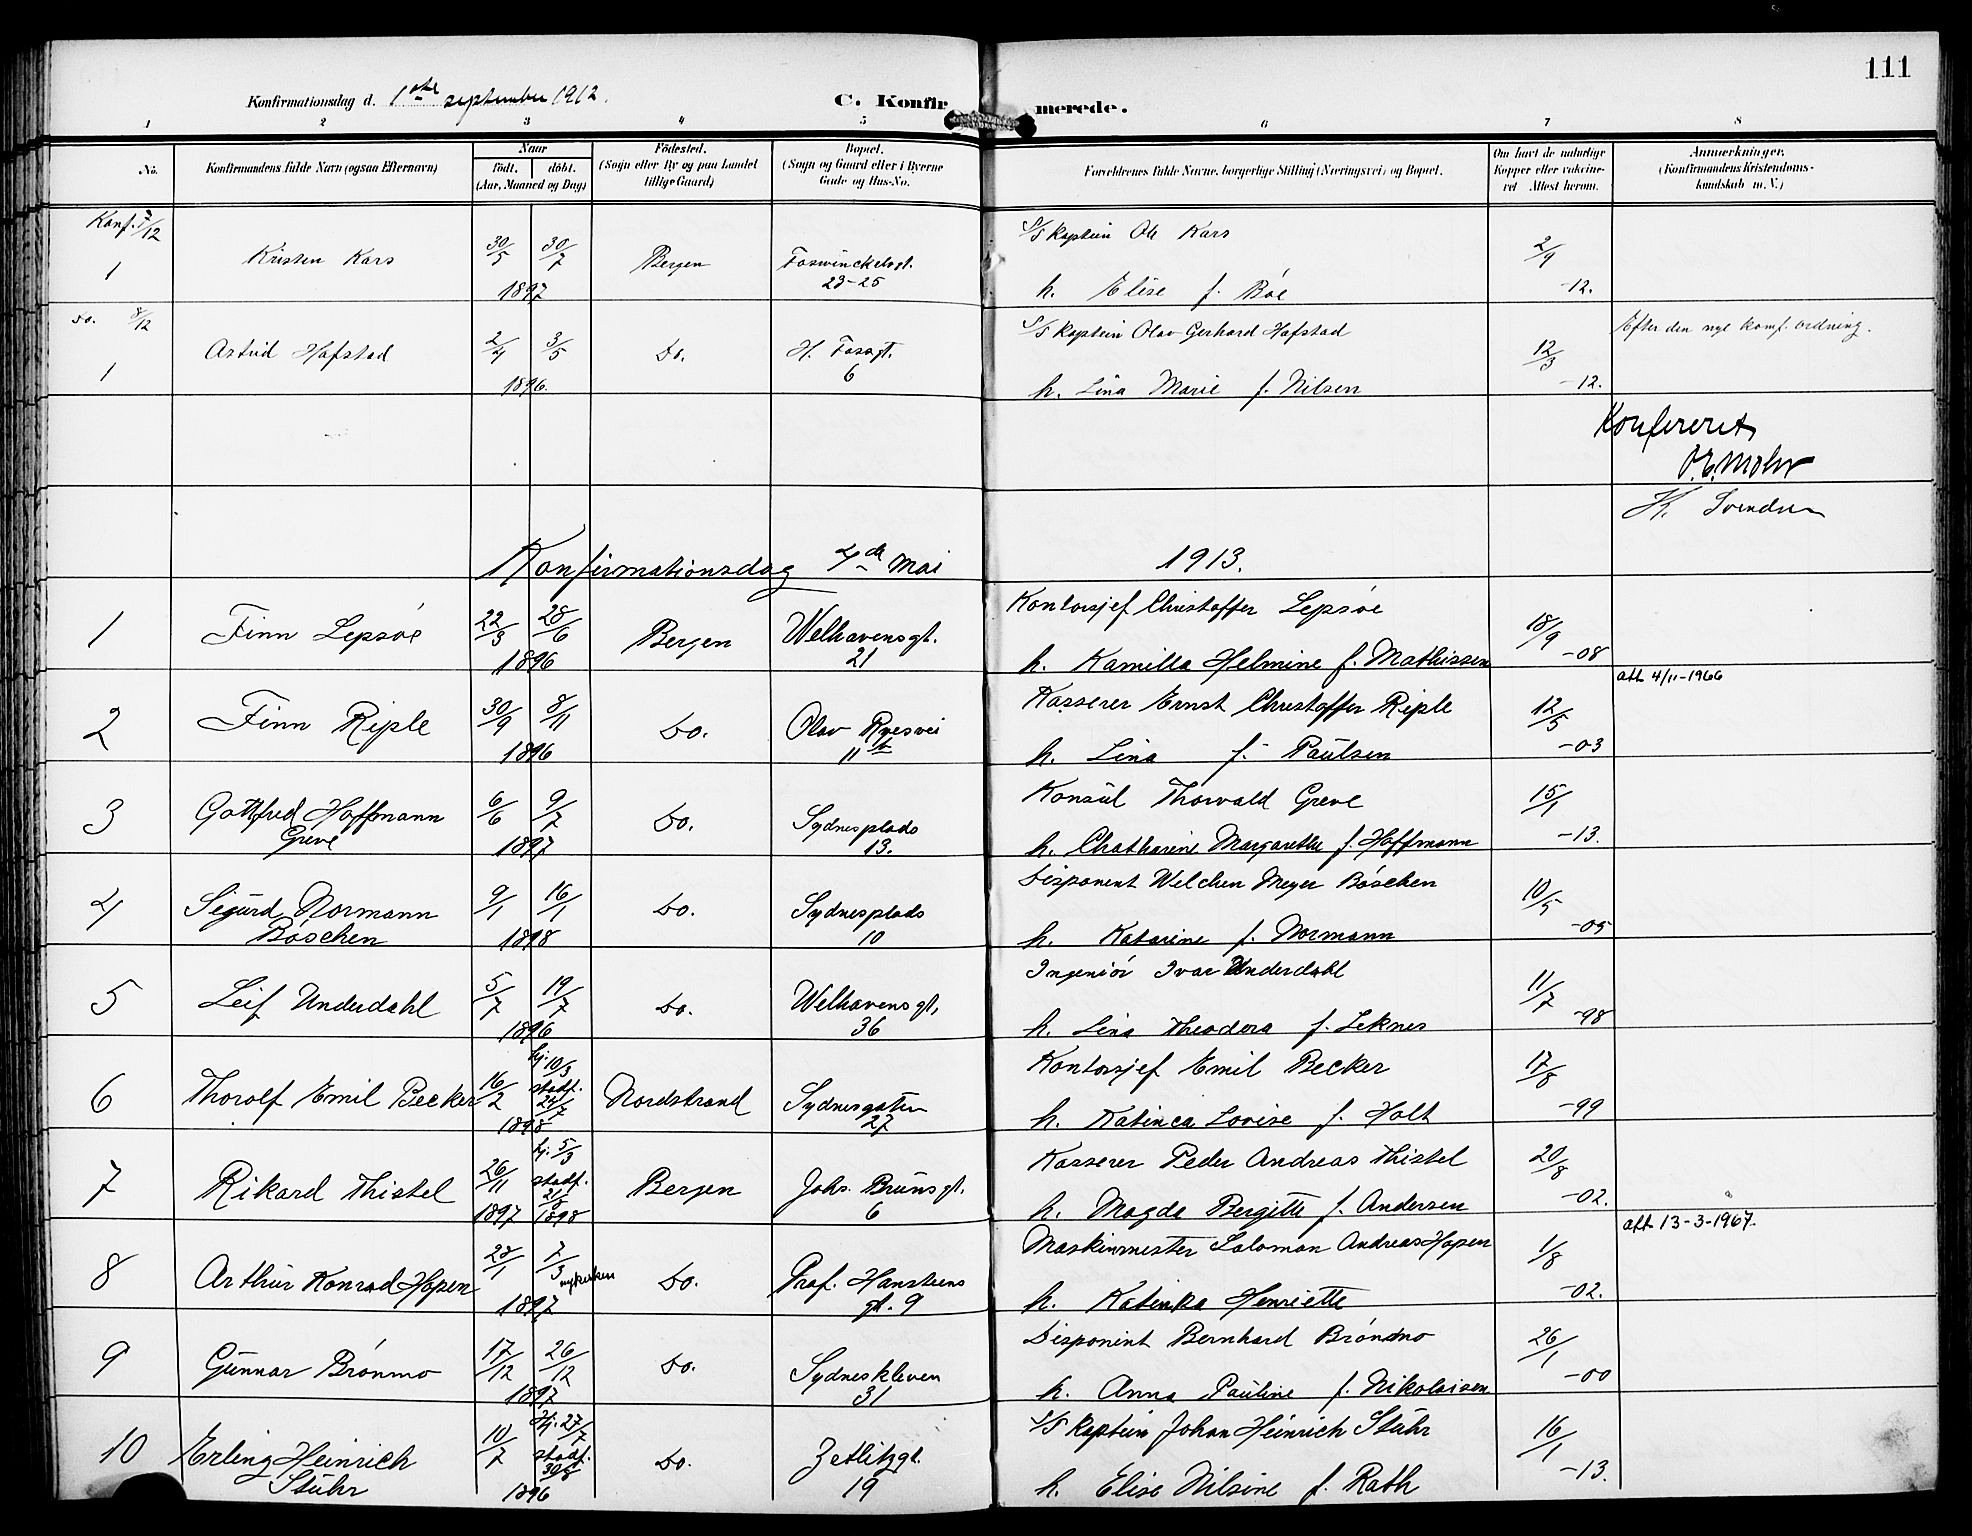 111
Konfirmationsdag d. 1ste september 1912.
C. Konfirmerede.
1 2 3 4 5 6 7 8
No. Konfirmandens fulde Navn (ogsaa Efternavn) Naar født. døbt. (Aar, Maaned og Dag) Fødested. (Sogn eller By og paa Landet tillige Gaard) Bopæl. (Sogn og Gaard eller i Byerne Gade og Hus-No.
Forældrenes fulde Navne, borgerlige Stilling (Næringsvei) og Bopæl. Om havt de naturlige Kopper eller vakcineret Attest herom. Anmærkninger. (Konfirmandens Kristendomskundskab m. V.)
Konf. 7/12
1 Kristen Kars 30/5 30/7 1897 Bergen Foswinckelsgt. 23-25
S/S kaptein Ole Kars
h. Elise f. Böe 2/9 -12.
Do. 8/12
1 Astrid Hafstad 2/4 3/5 1896. Do. H. Fossgt. 6
S/S kaptein Olav Gerhard Hafstad Efter den nye konf. ordning.
h. Lina Marie f. Nilsen 12/3 -12.
Konfereret
O.E. Mohr
K. Svendsen
Konfirmationsdag 4de Mai 1913.
1 Finn Lepsöe 22/3 28/6 1896 Bergen Welhavensgt. 21
Kontorsjef Christoffer Lepsöe
h. Kamilla Helmine f. Mathissen 18/9 -08
att 4/11-1966
2 Finn Riple 30/9 8/11 1896 Do. Olav Ryesvei 11b
Kasserer Ernst Christoffer Riple
h. Lina f. Paulsen 12/5 -03
3 Gottfred Hoffmann Greve 6/6 9/7 1897 Do. Sydnesplads 13.
Konsul Thorvald Greve
h. Chatharine Margarethe f. Hoffmann 15/1 -13.
4 Sigurd Normann Böschen 9/1 16/1 1898 Do. Sydnesplads 10
Disponent Welchen Meyer Böschen
h. Katarine f. Normann 10/5 -05
5 Leif Underdahl 5/7 19/7 1896 Do. Welhavensgt. 36
Ingeniör Ivar Underdahl
h. Lina Theodora f. Leknes 11/7 -98
6 Thorolf Emil Becker 16/2 hj. 10/3 stadf. 24/7 1898 Nordstrand Sydnesgaten 27
Kontorsjef Emil Becker
h. Katinca Lovise f. Holt 17/8 -99
7 Rikard Thistel 26/11 1897 hj. 5/3 stadf. 21/8 1898 Bergen Johs. Brunsgt. 6
Kasserer Peder Andreas Thistel
h. Magda Bergitte f. Andersen 20/8 -02.
att 13-3-1967.
8 Arthur Konrad Hopen 28/1 7/3 nykirken 1897 Do. Prof. Hansteens gt. 9
Maskinmester Salomon Andreas Hopen
h. Katinka Henriette 1/8 -02.
9 Gunnar Brönmo 17/12 26/12 1897 Do. Sydneskleven 31
Disponent Bernhard Bröndmo
h. Anna Pauline f. Nikolaisen 26/1 -00
10 Erling Heinrich Stühr 10/7 Hj. 27/7 stadf. 30/8 1896 Do. Zetlitzgt. 19
S/S kaptein Johan Heinrich Stühr
h. Elise Nilsine f. Rath 16/1 -13.